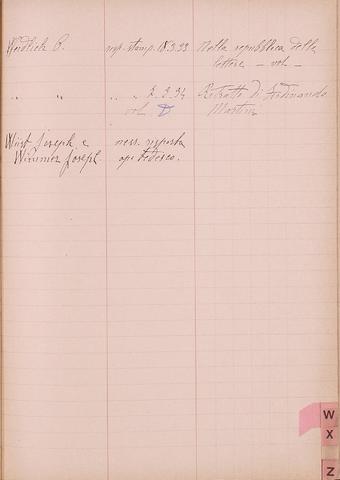 Weidlich C. resp. stamp. 18.3.93 Nella repubblica delle
lettere – vol –
" " " " 2.2.94 Ritratti di Ferdinando
vol. Martini
Wüst Joseph e ness. risposta
Wimmer Joseph op. Tedesco.
W
X
Z